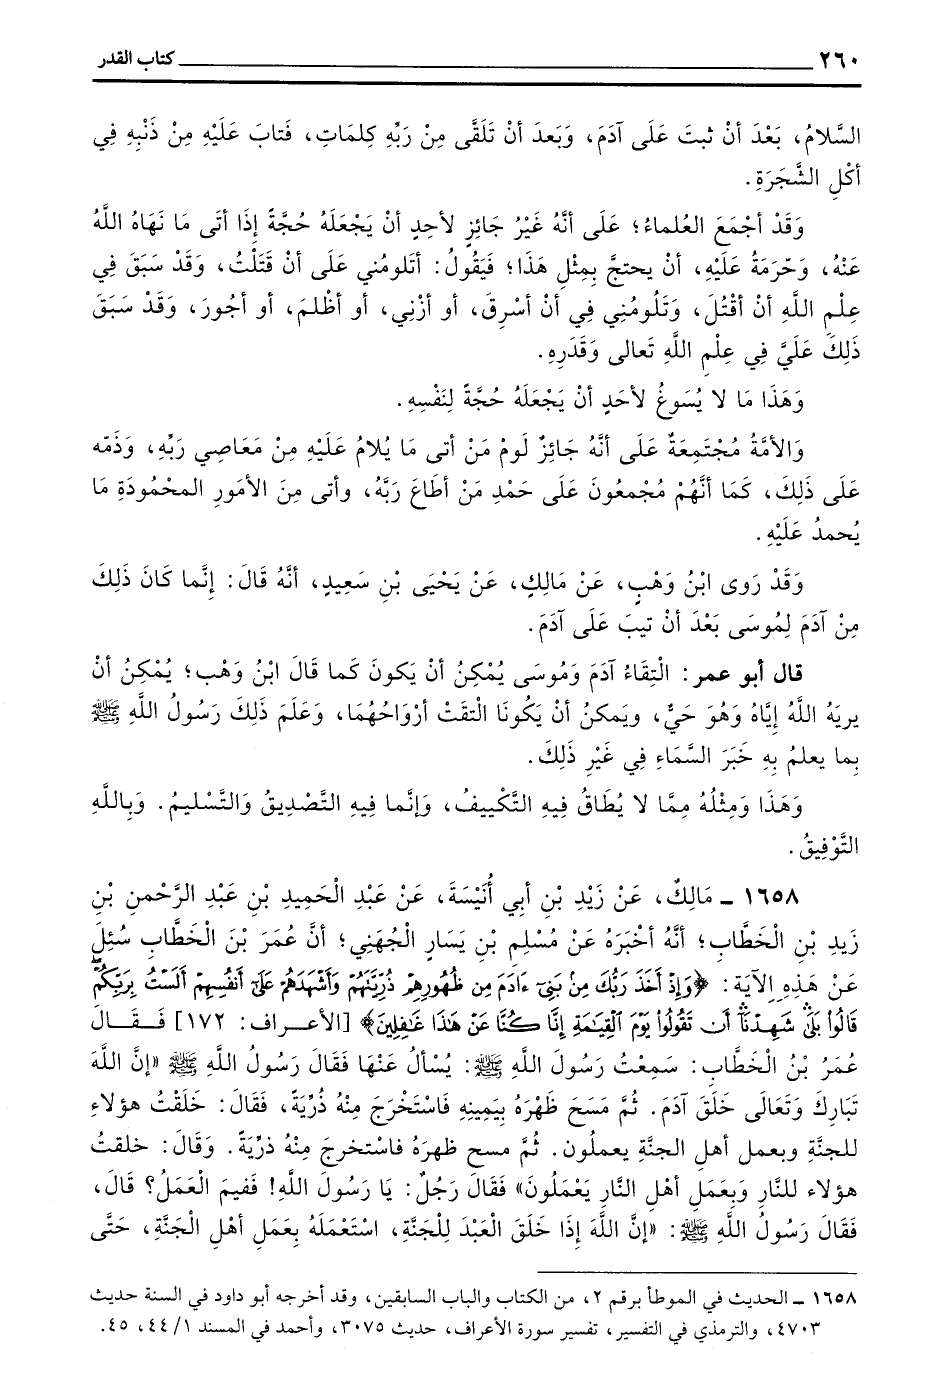 ٢٦٠ كتاب القدر
السَّلامُ، بَعْدَ أنْ ثبتَ عَلَى آدَمَ، وَبَعدَ أنْ تَلَقَّى مِنْ رَبِّهِ كِلمَاتٍ، فَتابَ عَلَيْهِ مِنْ ذَنْبِهِ فِي
أكْلِ الشَّجَرَةِ.
وَقَدْ أجْمَعَ العُلماءُ؛ عَلَى أنَّهُ غَيْرُ جَائِزٍ لأحِدٍ أنْ يَجْعَلَهُ حُجَّةً إذَا أتَى مَا نَهَاهُ اللَّهُ
عَنْهُ، وَحّرَمَهُ عَلَيْهِ، أنْ يحتجَّ بِمِثْلِ هَذَا؛ فَيَقُولُ: أتَلومُني عَلَى أنْ قَتَلْتُ، وَقَدْ سَبَقَ فِي
عِلْمِ اللَّهِ أنْ أقْتُلَ، وَتَلُومُنِي فِي أنْ أسْرِقَ، أو أزْنِي، أو أظْلمَ، أو أجُورَ، وَقَدْ سَبَقَ
ذَلِكَ عَلَيَّ فِي عِلْمِ اللَّهِ تَعالى وَقَدَرِهِ.
وَهَذَا مَا لا يُسَوغُ لأحَدٍ أنْ يَجْعَلَهُ حُجَّةً لِنَفْسِهِ.
وَالأمَّةُ مُجْتَمِعَةٌ عَلَى أنَّهُ جَائِزٌ لَومُ مَنْ أتى مَا يُلامُ عَلَيْهِ مِنْ مَعَاصِي رَبِّهِ، وَذَمّه
عَلَى ذَلِكَ، كَمَا أنَّهُمْ مُجْمعُونَ عَلَى حَمْدِ مَنْ أطَاعَ رَبَّهُ، وأتى مِنَ الأمَورِ المحْمُودَةِ مَا
يُحمدُ عَلَيْهِ.
وَقَدْ رَوى ابْنُ وَهْبٍ، عَنْ مَالِكٍ، عَنْ يَحْيَى بْنِ سَعِيدٍ، أنَّهُ قَالَ: إنَّما كَانَ ذَلِكَ
مِنْ آدَمَ لِمُوسَى بَعْدَ أن تيبَ عَلَى آدَمَ.
قال أبو عمر: الْتِقَاءُ آدَمَ وَمُوسَى يُمْكِنُ أنْ يَكونَ كَما قَالَ ابْنُ وَهْب؛ يُمْكِنُ أنْ
يريَهُ اللَّهُ إيَّاهُ وَهُوَ حَيٌّ، ويَمكنُ أنْ يَكُونَا التقَتْ أرْوَاحُهُمَا، وَعَلَمَ ذَلِكَ رَسُولُ اللَّهِ ﷺ
بِما يعلمُ بِهِ خَبَرَ السَّمَاءِ فِي غَيْرِ ذَلِكَ.
وَهَذَا وَمِثْلُهُ مِمَّا لا يُطَاقُ فِيهِ التَّكْييفُ، وَإنَّما فِيهِ التَّصْدِيقُ وَالتَّسْليمُ. وَبِاللَّهِ
التَّوْفِيقُ.
١٦٥٨ ـ مَالِكٌ، عَنْ زَيْدِ بْنِ أبِي أُنَيْسَةَ، عَنْ عَبْدِ الْحَمِيدِ بْنِ عَبْدِ الرَّحْمنِ بْنِ
زَيدِ بْنِ الْخَطَّابِ؛ أنَّهُ أخْبَرَهُ عَنْ مُسْلِمِ بْنِ يَسَارٍ الْجُهَنِي؛ أنَّ عُمَرَ بْنَ الْخَطَّابِ سُئِلَ
عَنْ هَذِهِ الآيَة: ﴿وَإِذْ أَخَذَ رَبُّكَ مِنْ بَنِي ءَادَمَ مِن ظُهُورِهِمْ ذُرِّيَّتَهُمْ وَأَشْهَدَهُمْ عَلَىٰ أَنفُسِهِمْ أَلَسْتُ بِرَبِّكُمْ
قَالُوا بَلَىٰ شَهِدْنَآ أَن تَقُولُوا يَوْمَ الْقِيَٰمَةِ إِنَّا كُنَّا عَنْ هَٰذَا غَٰفِلِينَ﴾ [الأعراف: ١٧٢] فَـقَـالَ
عُمَرُ بْنُ الْخَطَّابِ: سَمِعْتُ رَسُولَ اللَّهِ ﷺ: يُسْألُ عَنْهَا فَقَالَ رَسُولُ اللَّهِ ﷺ «إنَّ اللَّهَ
تَبَارَكَ وَتَعَالَى خَلَقَ آدَمَ. ثُمَّ مَسَحَ ظَهْرَهُ بِيَمِينِهِ فَاسْتَخْرَجَ مِنْهُ ذُرِّيَةً، فَقَالَ: خَلَقْتُ هؤلاءِ
للجنَّةِ وبعمل أهلِ الجنَّةِ يعملُون. ثُمَّ مسح ظهرَهُ فاسْتخرجَ مِنْهُ ذرِّيَةً. وَقَالَ: خلقتُ
هؤلاء للنَّارِ وَبِعَمَلِ أهْلِ النَّارِ يَعْمَلُونَ» فَقَالَ رَجُلٌ: يَا رَسُولَ اللَّهِ! فَفِيمَ الْعَمَلُ؟ قَالَ،
فَقَالَ رَسُولُ اللَّهِ ﷺ: «إنَّ اللَّهَ إذَا خَلَقَ الْعَبْدَ لِلْجَنَّةِ، اسْتَعْمَلَهُ بِعَمَلِ أهْلِ الْجَنَّةِ، حَتَّى
١٦٥٨ ـ الحديث في الموطأ برقم ٢، من الكتاب والباب السابقين، وقد أخرجه أبو داود في السنة حديث
٤٧٠٣، والترمذي في التفسير، تفسير سورة الأعراف، حديث ٣٠٧٥، وأحمد في المسند ١/ ٤٤، ٤٥.